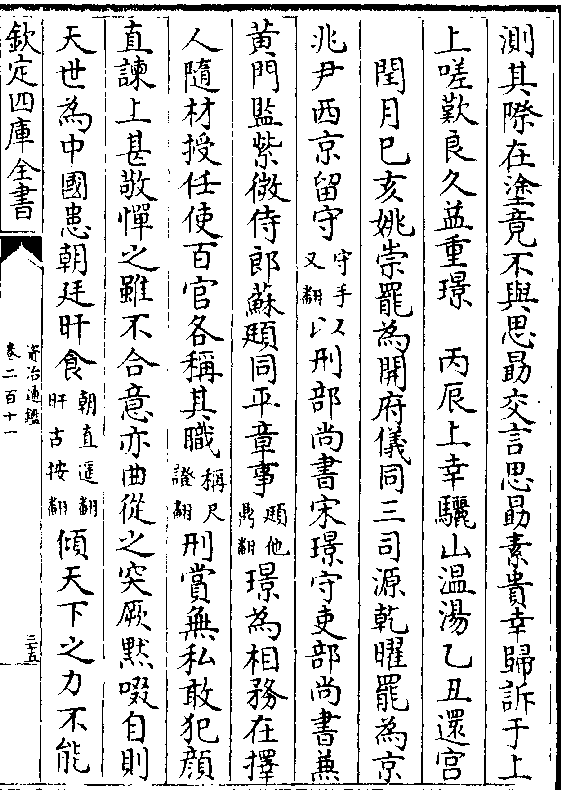 測其際在塗竟不與思勗交言思勗素貴幸歸訴于上
上嗟歎良久益重璟　丙辰上幸驪山温湯乙丑還宫
閏月己亥姚崇罷為開府儀同三司源乾曜罷為京
兆尹西京留守守手又翻以刑部尚書宋璟守吏部尚書兼
黄門監紫微侍郎蘇頲同平章事頲他鼎翻璟為相務在擇
人隨材授任使百官各稱其職稱尺證翻刑賞無私敢犯顔
直諫上甚敬憚之雖不合意亦曲從之突厥黙啜自則
天世為中國患朝廷旰食朝直遥翻旰古按翻傾天下之力不能
欽定四庫全書
資治通鑑
卷二百十一
三十五